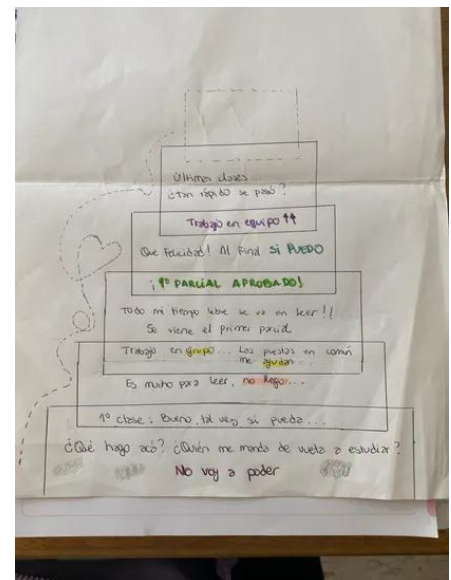 Últimas clases...
¿Tan rápido se pasó?
Trabajo en equipo ↑↑
Que Felicidad! Al Final SI PUEDO
¡1º PARCIAL APROBADO!
TODO mi tiempo libre se va en leer!!
Se viene el primer parcial
Trabajo en grupo... Las puestas en común
me ayudan...
Es mucho para leer, no llego...
1º clase: Bueno, tal vez si pueda...
¿Qué hago acá? ¿Quién me manda de vuelta a estudiar?
No voy a poder